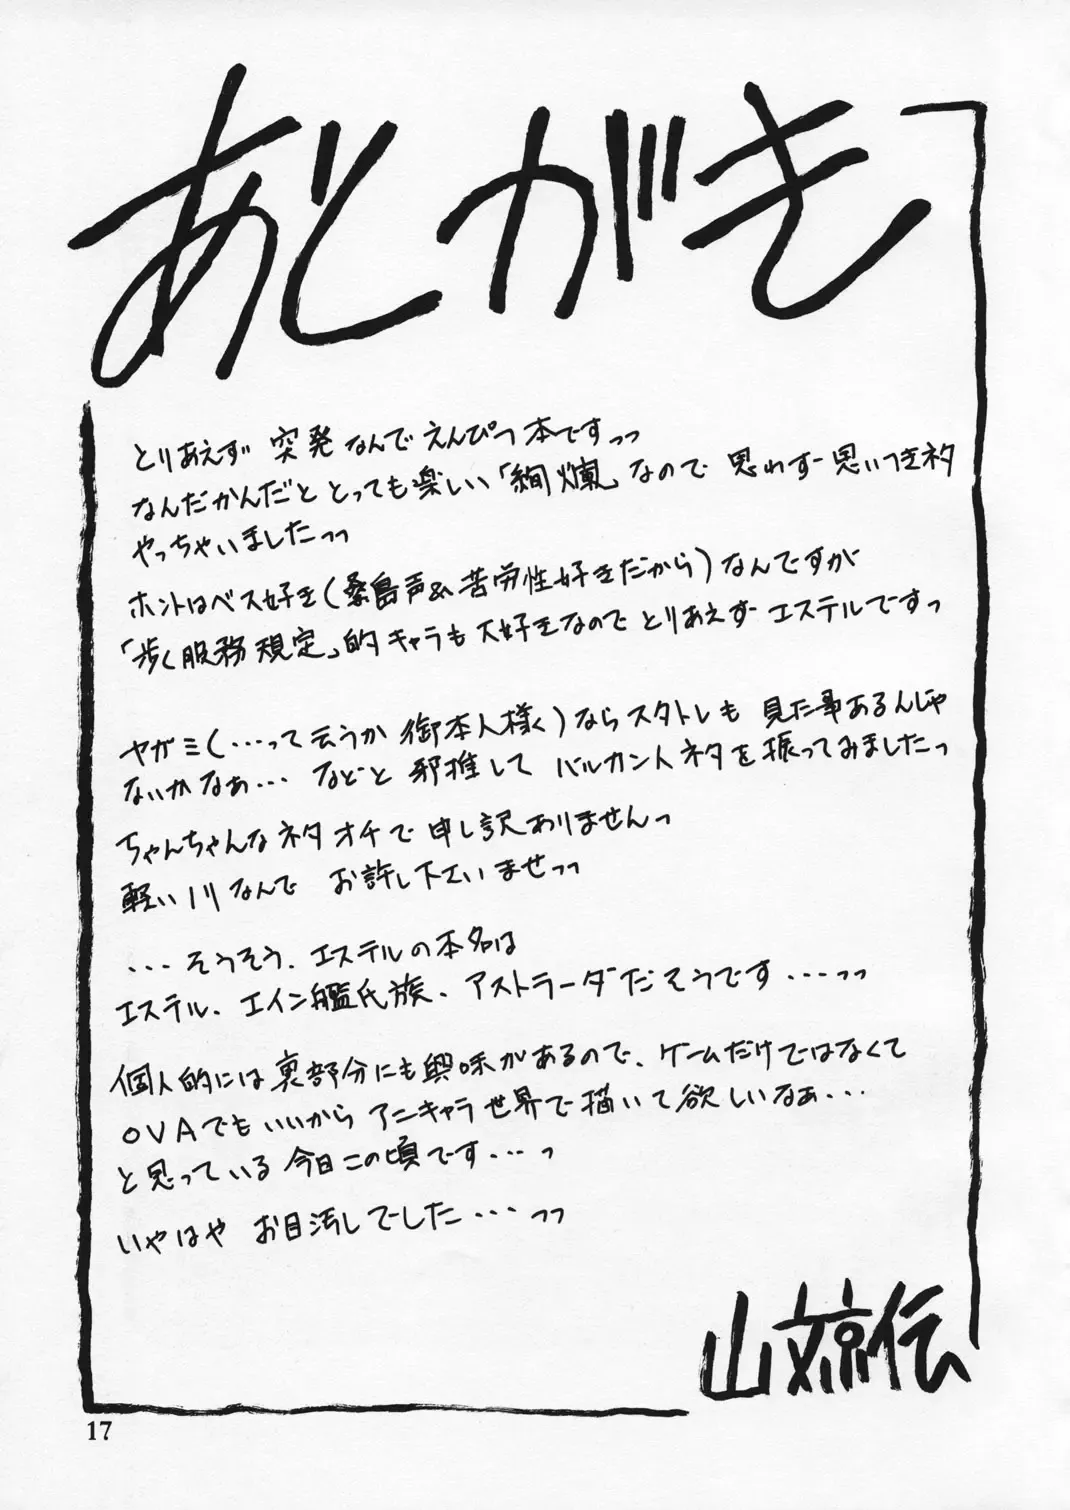 あとがき
とりあえず 突発なんでえんぴつ本ですっっ
なんだかんだと とっても楽しい「絢爛」なので 思わず思いつきネタ
やっちゃいましたっっ
ホントはベス好き(桑島声&苦労性好きだから)なんですが
「歩く服務規定」的キャラも大好きなので とりあえず エステルですっ
ヤガミ(…って云うか 御本人様く)なら スタトレも 見た事あるんじゃ
ないかなぁ… などと 邪推して バルカン人ネタを振ってみましたっ
ちゃんちゃんなネタオチで 申し訳ありませんっ
軽いノリなんで お許し下さいませっっ
…そうそう、エステルの本名は
エステル、エイン艦氏族、アストラーダだそうです…っっ
個人的には裏部分にも興味があるので、ゲームだけではなくて
OVAでもいいから アニキャラ世界で描いて欲しいなぁ…
と思っている今日この頃です…っ
いやはや お目汚しでした…っっ
山文京伝
17